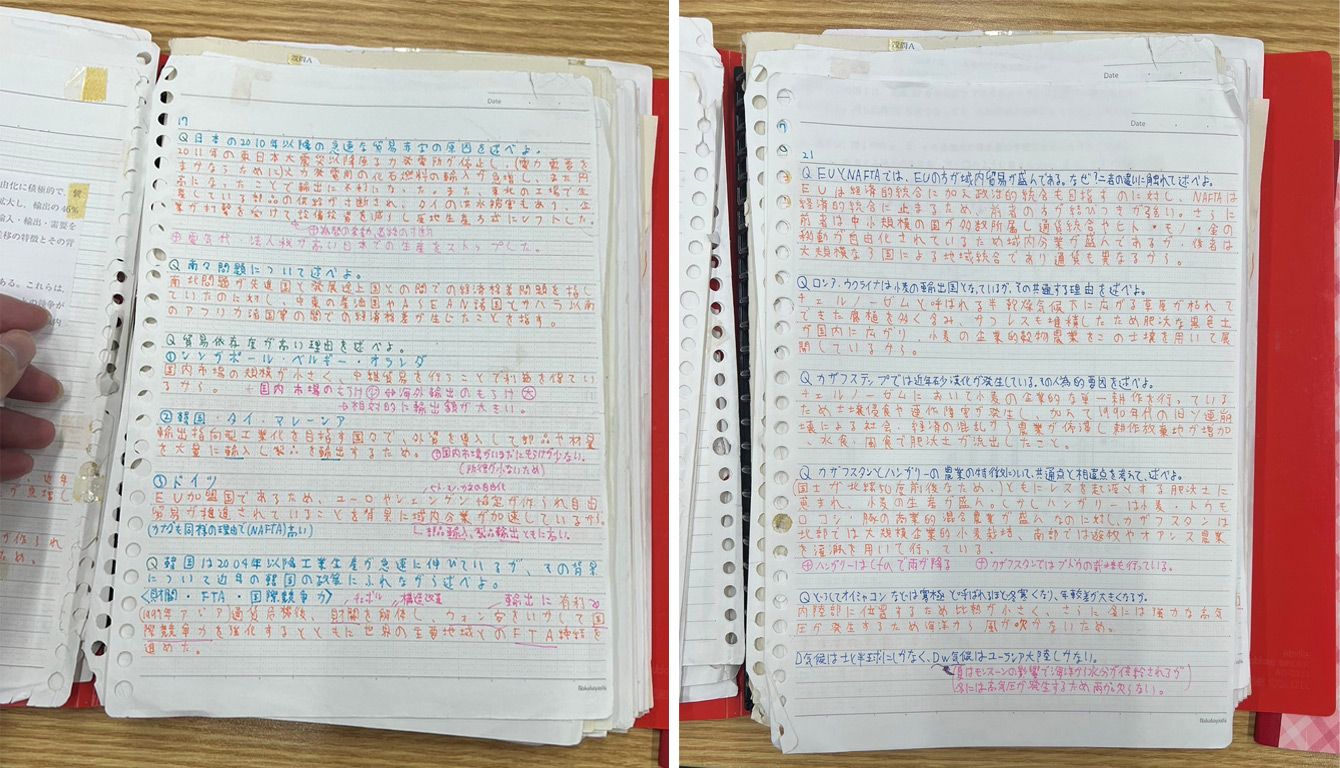 由化に積極的で、
拡大し、輸出の46%
輸入・輸出・需要を
移の特徴とその背
ある。これらは、
設問A
Date
17
Q 日本の2010年以降の急速な貿易赤字の原因を述べよ。
2011年の東日本大震災以降原子力発電所が停止し、(電力需要を
まかなうために)火力発電用の化石燃料の輸入が急増し、また円
高になったことで輸出に不利になった。また、東北の工場で生
産している部品の供給が寸断され、タイの洪水被害もあり、企
業が打撃を受けて設備投資を減らし産地生産方式にシフトした。
⊕電気代・法人税が高い日本での生産をストップした。
Q 南々問題について述べよ。
南北問題が先進国と発展途上国との間での経済格差問題を指し
ていたのに対し、中東の産油国やASEAN諸国とサハラ以南
のアフリカ諸国等の間での経済格差が生じたことを指す。
Q 貿易依存度が高い理由を述べよ。
①シンガポール・ベルギー・オランダ
国内市場の規模が小さく、中継貿易を行うことで利益を得てい
るから。 国内市場のもうけ小 海外輸出のもうけ大
→相対的に輸出額が大きい。
②韓国・タイ・マレーシア
輸出指向型工業化を目指す国々で、外資を導入して部品や材料
を大量に輸入し製品を輸出するため。 ⊕国内市場がいまだにもうけが少ない。
(所得が少ないため)
③ドイツ
ヒト・モノ・カネの自由化
EU加盟国であるため、ユーロやシェンゲン協定が作られ自由
貿易ということを背景に域内分業が加速しているから。
(カナダも同様の理由で(NAFTA)高い) 部品輸入、製品輸出ともに高い。
Q 韓国は2004年以降工業生産が急速に伸びているが、その背景
について近年の韓国の政策にふれながら述べよ。
〈財閥・FTA・国際競争力〉 チェボル 構造改革 輸出に有利
1997年アジア通貨危機後、財閥を解体し、ウォン安をいかして国
際競争力を強化するとともに世界の主要地域とのFTA締結を
進めた。
Nakabayashi
設問A
Date
Date
21
Q EUとNAFTAでは、EUの方が域内貿易が盛んである。なぜ?二者の違いに触れて述べよ。
EUは経済的統合に加え政治的統合も目指すのに対し、NAFTAは
経済的統合に止まるため、前者の方が結びつきが強い。さらに
前者は中小規模の国が多数所属し通貨統合やヒト・モノ・金の
移動が自由化されているため域内分業が盛んであるが、後者は
大規模な3国による地域統合であり通貨も異なるから。
Q ロシア、ウクライナは小麦の輸出国となっているが、その共通する理由を述べよ。
チェルノーゼムと呼ばれる半乾燥気候下に広がる草原が枯れて
できた腐植を多く含み、かつレスも堆積したため肥沃な黒色土
が国内に広がり、小麦の企業的穀物農業をこの土壌を用いて展
開しているから。
Q カザフステップでは近年砂漠化が発生している。その人為的要因を述べよ。
チェルノーゼムにおいて小麦の企業的な単一耕作を行っている
ため土壌侵食や連作障害が発生し、加えて1990年代の旧ソ連崩
壊による社会・経済の混乱から農業が停滞し耕作放棄地が増加
、水食・風食で肥沃土が流出したこと。
Q カザフスタンとハンガリーの農業の特徴について、共通点と相違点を考えて、述べよ。
(国土が北緯50度前後なため、)ともにレスを起源とする肥沃土に
恵まれ、小麦の生産が盛ん。しかしハンガリーは小麦・トウモ
ロコシ・豚の商業的混合農業が盛んなのに対し、カザフスタンは
北部では大規模企業的小麦栽培、南部では遊牧やオアシス農業
を灌漑を用いて行っている。
⊕ハンガリーはCfaで雨が降る ⊕カザフスタンではブドウの栽培も行っている。
Q どうしてオイミャコンなどは寒極と呼ばれるほど冬寒くなり、年較差が大きくなるか。
内陸部に位置するため比熱が小さく、さらに冬には強力な高気
圧が発生するため海洋から風が吹かないため。
D気候は北半球にしかなく、Dw気候はユーラシア大陸しかない。
(夏はモンスーンの影響で海洋から水分が供給されるが
冬には高気圧が発生するため雨が少ない。)
Nakabayashi